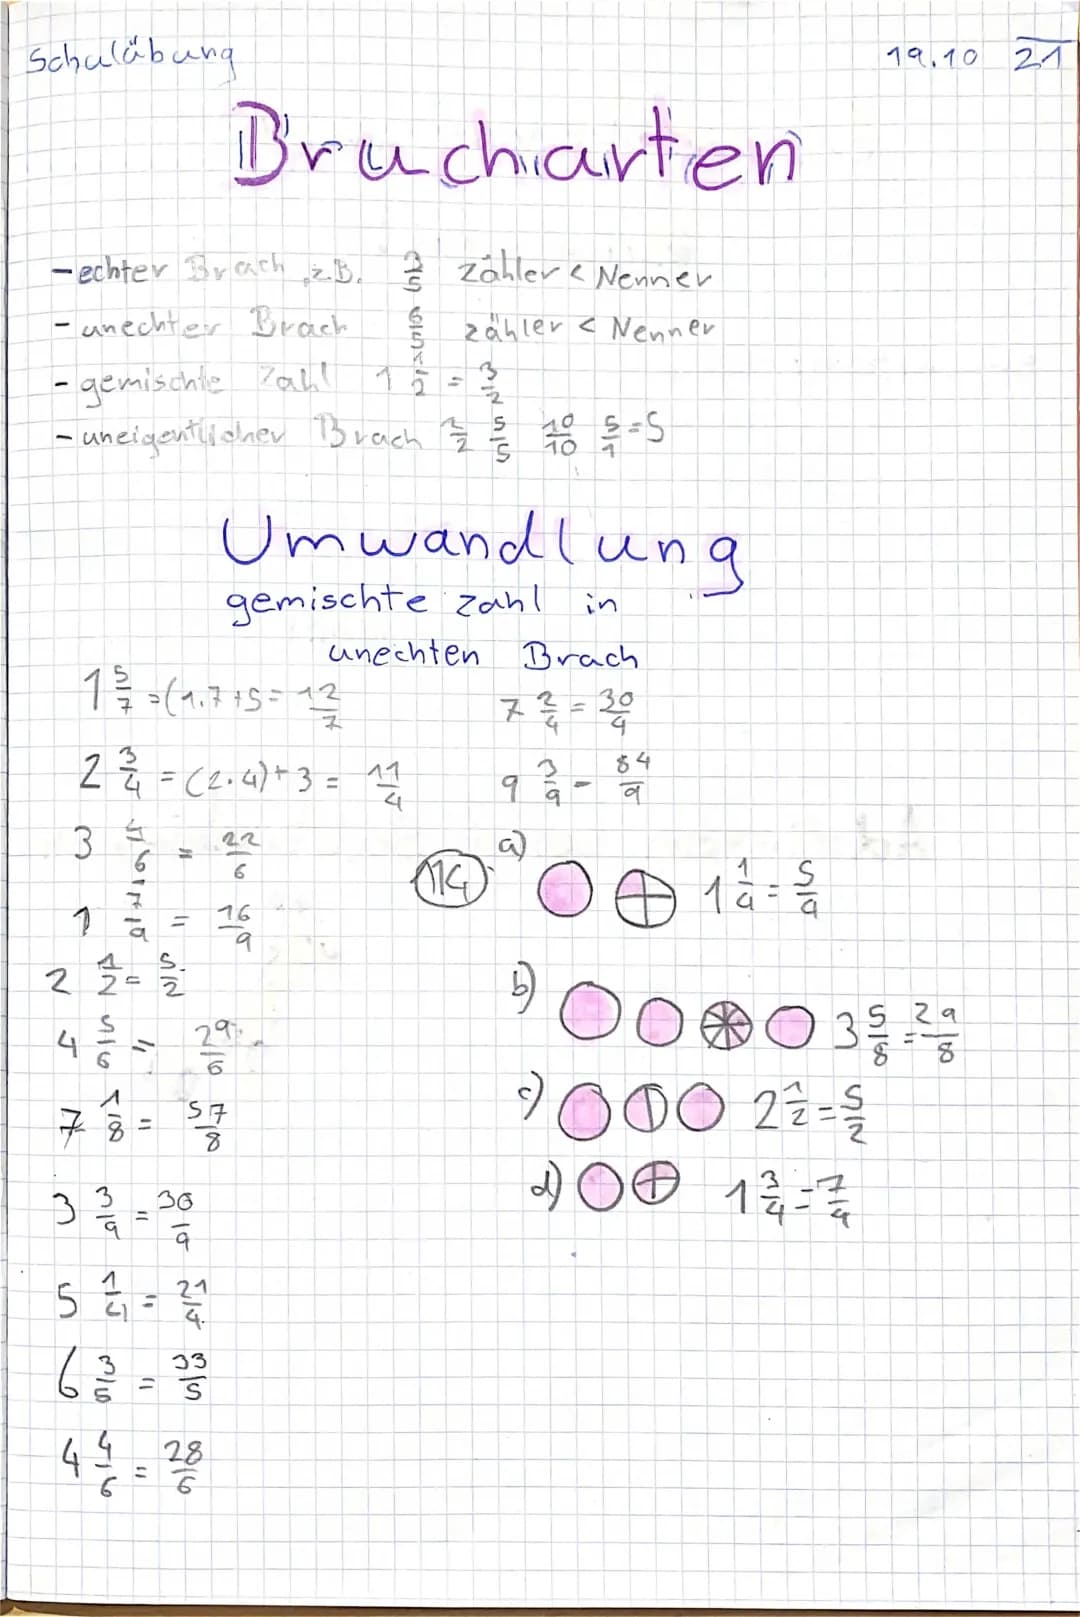 Schulübung 19.10 21
Bruchiarten
- echter Bruch z.B. 3/5 zähler < Nenner
- unechter Bruch 6/5 zähler < Nenner
- gemischte Zahl 1 1/2 = 3/2
- uneigentlicher Bruch 2/2 5/5 10/10 5/1 = 5
Umwandlung
gemischte zahl in
unechten Bruch
1 5/7 = (1.7+5 = 12/7
2 3/4 = (2.4)+3 = 11/4
3 4/6 = 22/6
1 7/9 = 16/9
2 1/2 = 5/2
4 5/6 = 29/6
7 1/8 = 57/8
3 3/9 = 30/9
5 1/4 = 21/4
6 3/5 = 33/5
4 4/6 = 28/6
7 2/4 = 30/4
9 3/9 = 84/9
114 a) 1 1/4 = 5/4
b) 3 5/8 = 29/8
c) 2 1/2 = 5/2
d) 1 3/4 = 7/4